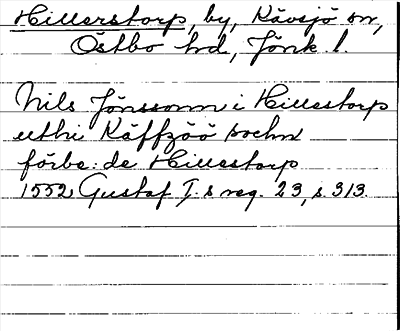 Hillerstorp, by, Kävsjö sn,
Östbo hd, Jönk. l.
Nils Jönssonn i Hillestorp
uthi Käffzöö sochn
förbe: de Hillestorp
1552 Gustaf I:s reg. 23, s. 313.